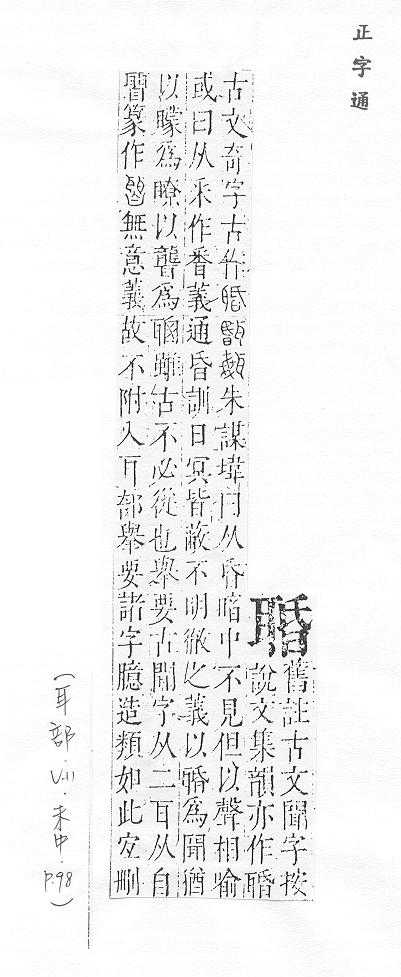 正字通
䎽
舊註古文聞字按
說文集韻亦作䎽
古文奇字古作朱謀㙔曰从昏暗中不見但以聲相喻
或曰从釆作番義通昏訓日冥皆蔽不明徹之義以䎽為聞猶
以矇為瞭以聾為聰雖古不必從也舉要古聞字从二耳从自
篆作無意義故不附入耳部舉要諸字臆造類如此宜刪
(耳部.V.11.未中.P.98)